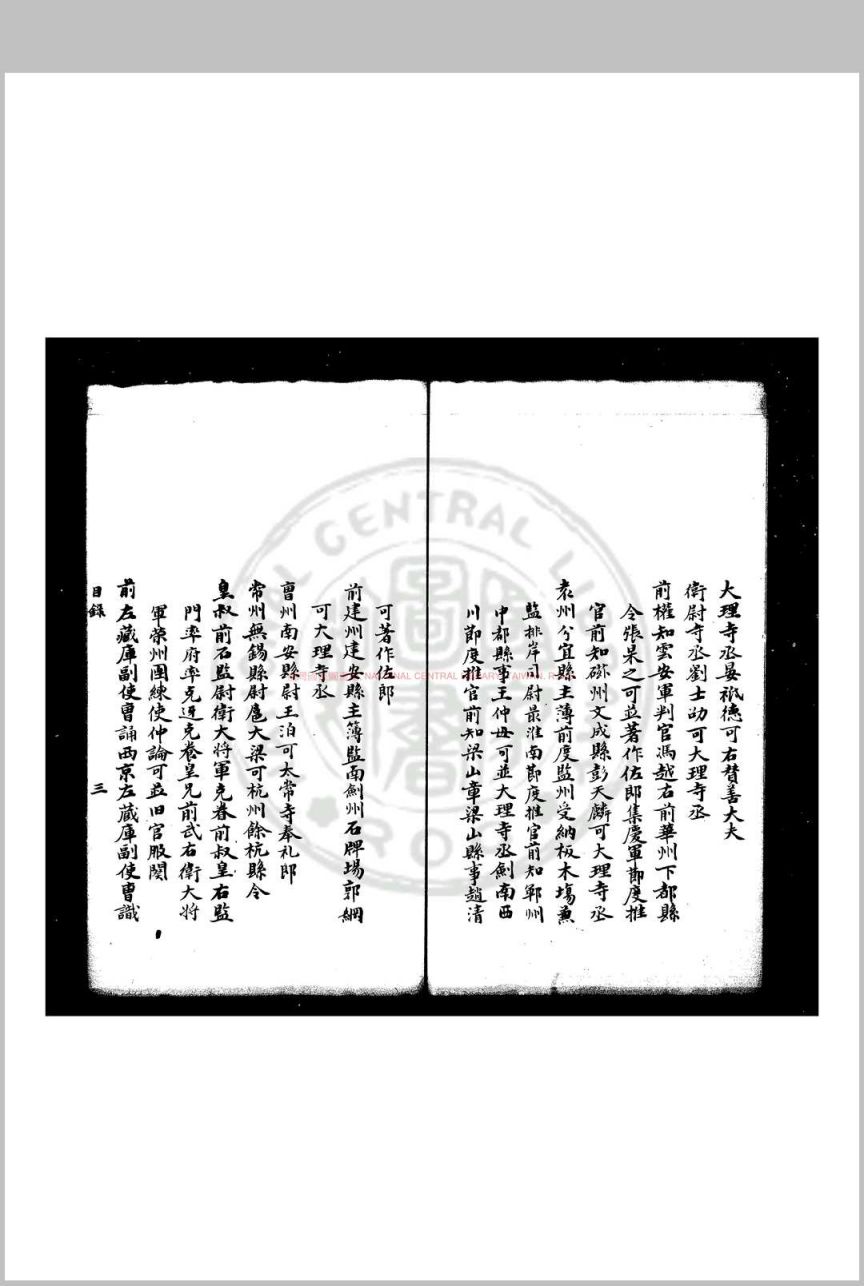 大理寺丞晏祇德可右賛善大夫
衛尉寺丞劉士劭可大理寺丞
前權知雲安軍判官馮越右前華州下都縣
令張杲之可並著作佐郎集慶軍節度推
官前知磁州文成縣彭天麟可大理寺丞
袁州分宜縣主薄前度監州受納板木塲兼
監排岸司尉最淮南節度推官前知鄆州
中都縣事王仲毋可並大理寺丞劍南西
川節度推官前知梁山軍梁山縣事趙清
可著作佐郎
前建州建安縣主簿監南劍州石牌場郭綱
可大理寺丞
曺州南安縣尉王泊可太常寺奉礼郎
常州無錫縣尉扈大梁可杭州餘杭縣令
皇叔前右監尉衛大將軍克眷前叔皇右監
門率府率克迓克巻皇兄前武右衛大将
軍榮州團練使仲論可並旧官服闋
前左藏庫副使曺誦西京左藏庫副使曺識
目錄 三
NATIONAL CENTRAL LIBRARY